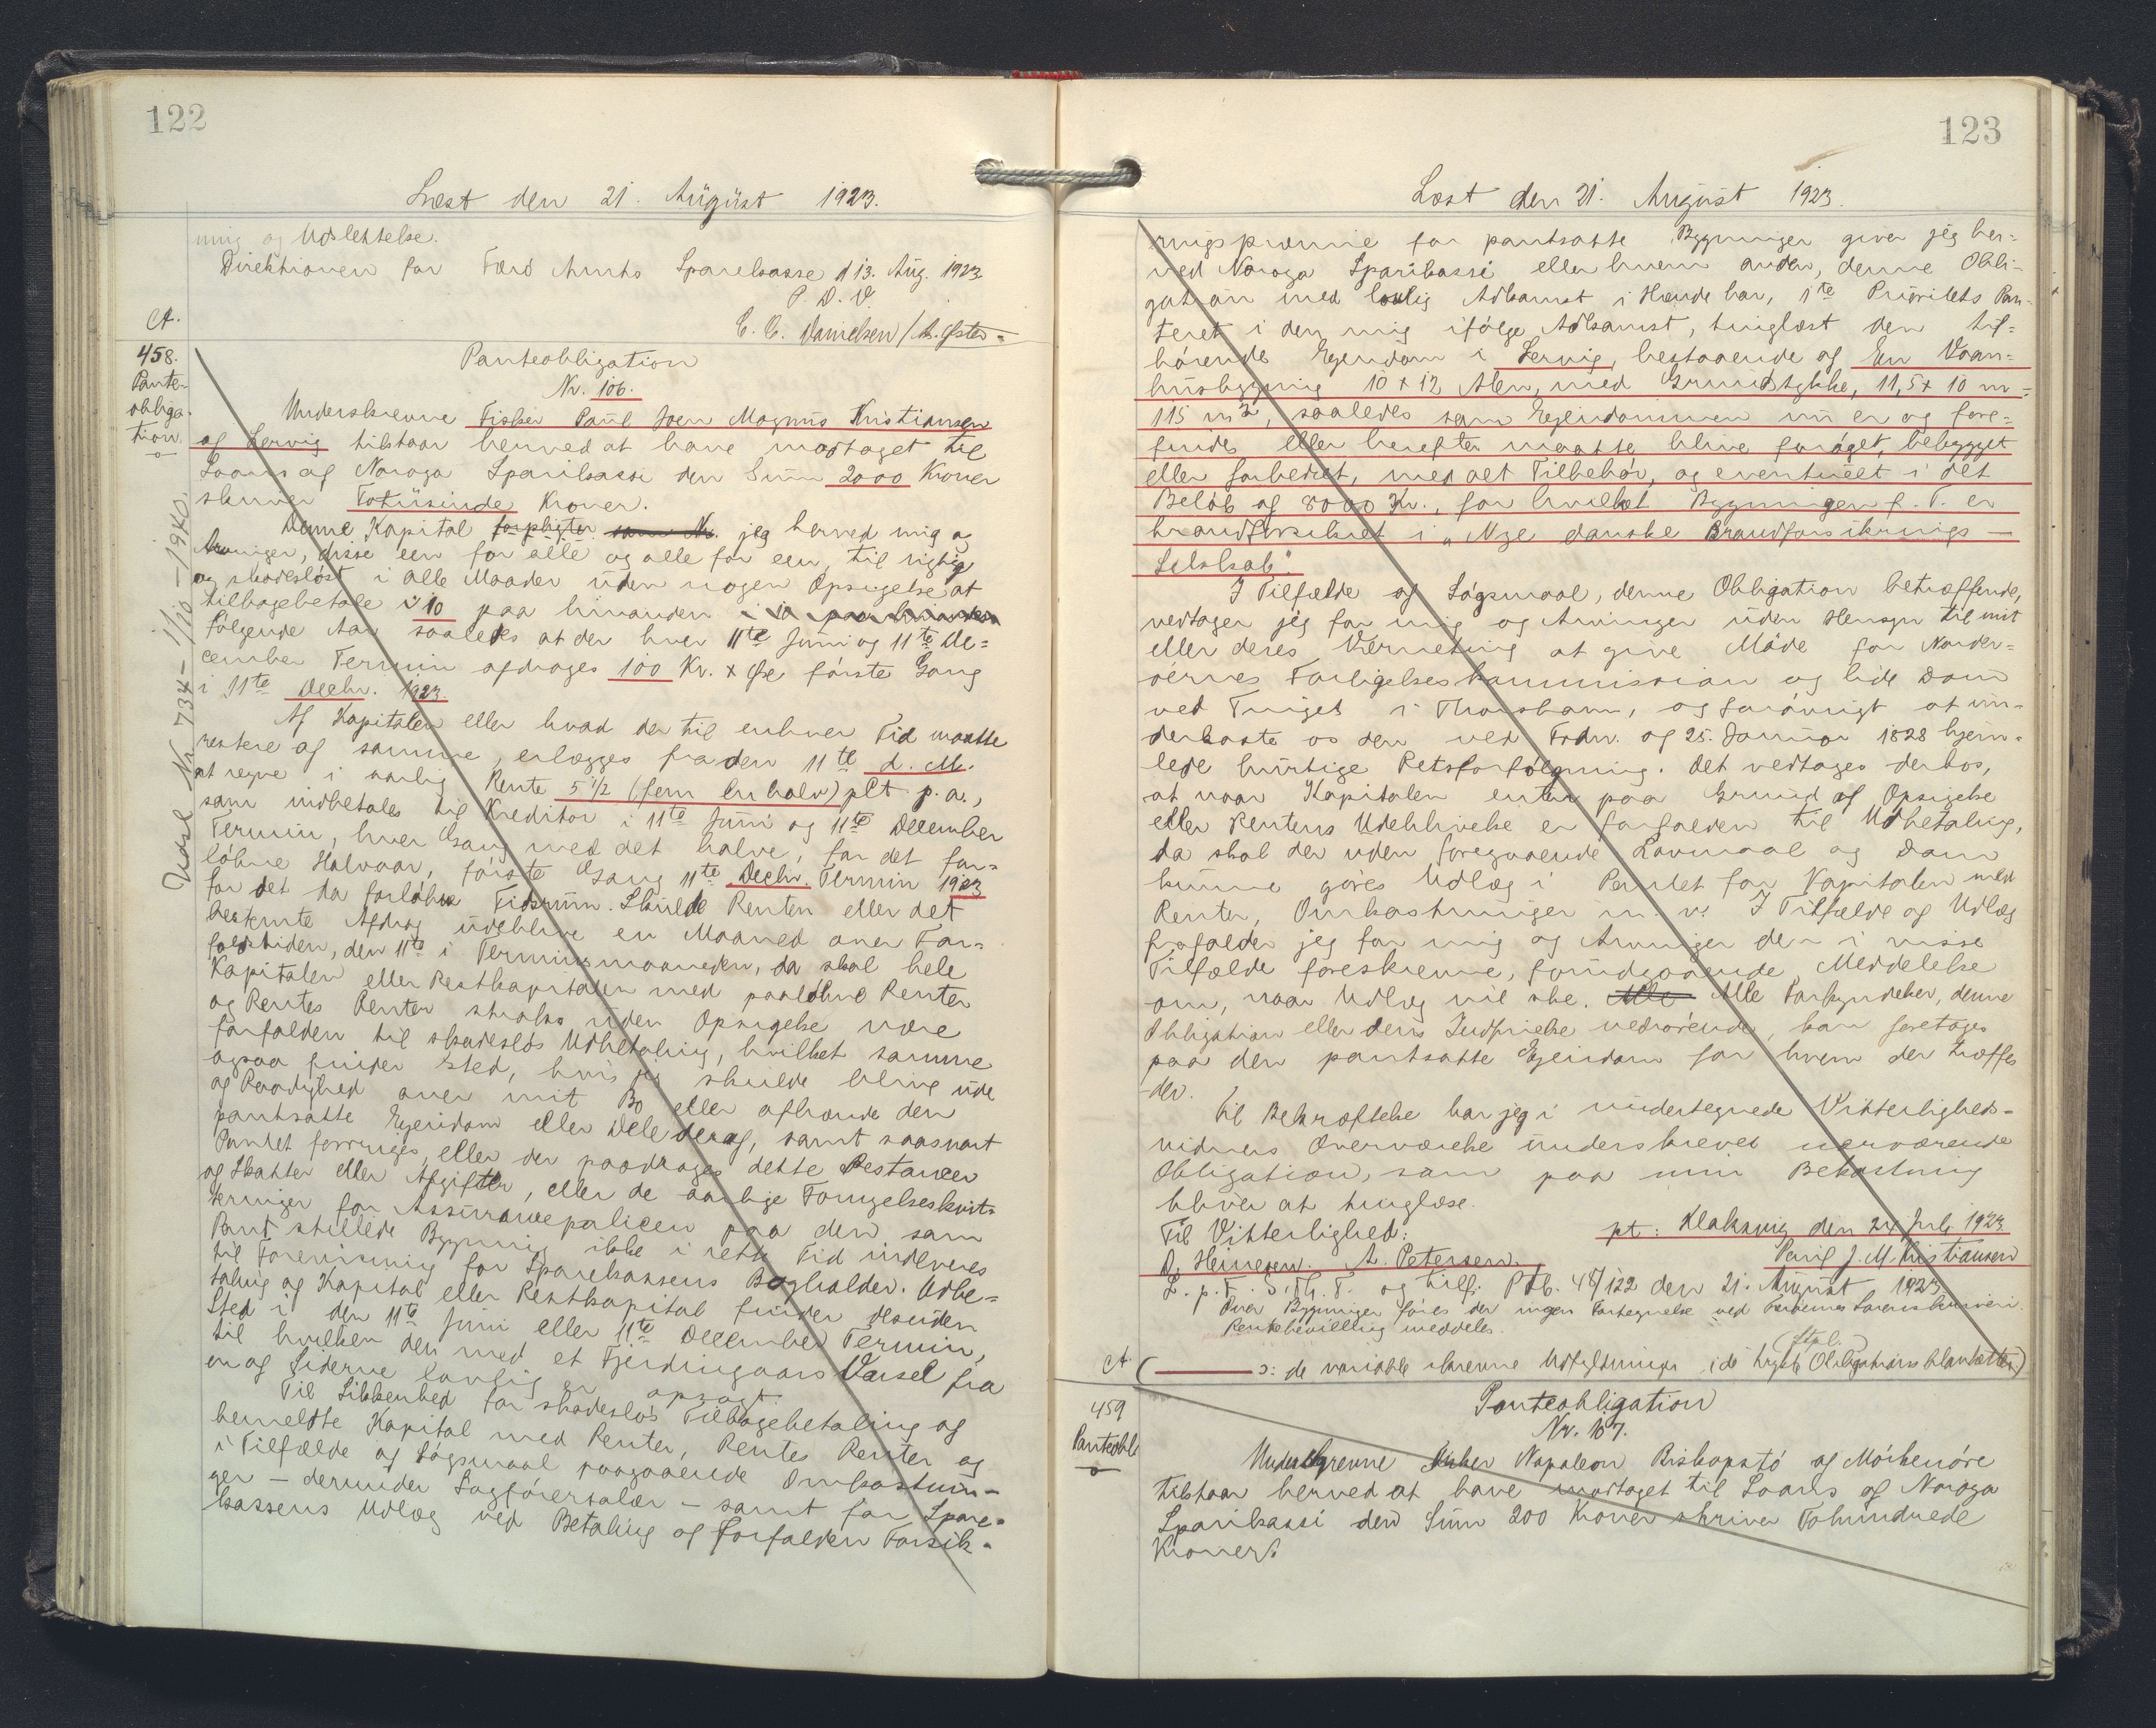 122
Læst den 21. August 1923.
ning og Udslettelse.
Direktionen for Færø Amts Sparekasse d 13. Aug. 1923
P. D. V.
C. C. Danielsen / M.
A.
458.
Pante-
obliga-
tion.
Udsl Nr 734 - 1/10 - 1940.
Panteobligation
Nr. 106.
Underskrevne Fisker Paul Joen Magnus Kristiansen
af Lervig tilstaar herved at have modtaget til
Laans af Noroya Sparikassi den Sum 2000 Kroner
skriver Totusinde Kroner.
Denne Kapital forpligter jeg herved mig og
Arvinger, disse een for alle og alle for een, til rigtig
og skadesløst i alle Maader uden nogen Opsigelse at
tilbagebetale i 10 paa hinanden i 10 paa hinanden
følgende Aar saaledes at der hver 11te Juni og 11te De=
cember Termin afdrages 100 Kr. x Øre første Gang
i 11te Decbr. 1923.
Af Kapitalen eller hvad der til enhver Tid maatte
restere af samme, erlægges fra den 11te d. M.
at regne i aarlig Rente 5 1/2 (fem en halv) pCt p. a.,
som indbetales til Kreditor i 11te Juni og 11te December
Termin, hver Gang med det halve, for det for=
løbne Halvaar, første Gang 11te Decbr. Termin 1923
for det da forløbne Tidsrum. Skulde Renten eller det
bestemte Afdrag udeblive en Maaned over For=
faldstiden, den 11te i Terminsmaaneden, da skal hele
Kapitalen eller Restkapitalen med paaløbne Renter
og Rentes Renter straks uden Opsigelse være
forfalden til skadesløs Udbetaling, hvilket samme
ogsaa finder Sted, hvis jeg skulde blive ude
af Raadighed over mit Bo eller afhænde den
pantsatte Ejendom eller Dele deraf, samt saasnart
Pantet forringes, eller der paadrages dette Restancer
af Skatter eller Afgifter, eller de aarlige Fornyelseskvit=
teringer for Assurancepolicen paa den som
Pant stillede Bygning ikke i rette Tid indleveres
til Forevisning for Sparekassens Bogholder. Udbe=
taling af Kapital eller Restkapital finder desuden
Sted i den 11te Juni eller 11te December Termin,
til hvilken den med et Fjerdingaars Varsel fra
en af Siderne lovlig er opsagt.
Til Sikkerhed for skadesløs Tilbagebetaling af
bemeldte Kapital med Renter, Rentes Renter og
i Tilfælde af Søgsmaal paagaaende Omkostnin-
ger – derunder Sagførersalær – samt for Spare=
kassens Udlæg ved Betaling af forfalden Forsik-
123
Læst den 21. August 1923.
ringspræmie for pantsatte Bygninger giver jeg her=
ved Noroya Sparikassi eller hvem anden, denne Obli-
gation med lovlig Adkomst i Hænde har, 1te Prioritets Pan-
teret i den mig ifølge Adkomst, tinglæst den til=
hørende Ejendom i Lervig, bestaaende af En Vaan=
husbygning 10 x 12 Alen, med Grundstykke, 11,5 x 10 m =
115 m2, saaledes som Ejendommen nu er og fore=
findes eller herefter maatte blive forøget, bebygget
eller forbedret, med alt Tilbehør, og eventuelt i det
Beløb af 8000 Kr., for hvilket Bygningen p. T. er
brandforsikret i "Nye danske Brandforsikrings-
Selskab".
I Tilfælde af Søgsmaal, denne Obligation betræffende,
vedtager jeg for mig og Arvinger uden Hensyn til mit
eller deres Værneting at give Møde for Norder=
øernes Forligelseskommission og lide Dom
ved Tinget i Thorshavn, og forøvrigt at un-
derkaste os den ved Frdn. af 25. Januar 1828 hjem-
lede hurtige Retsforfølgning. Det vedtages derhos,
at naar Kapitalen enten paa Grund af Opsigelse
eller Rentens Udeblivelse er forfalden til Udbetaling,
da skal der uden foregaaende Lovmaal og Dom
kunne gøres Udlæg i Pantet for Kapitalen med
Renter, Omkostninger m. v. I Tilfælde af Udlæg
frafalder jeg for mig og Arvinger den i visse
Tilfælde foreskrevne, forudgaaende Meddelelse
om, naar Udlæg vil ske. Alle Alle Forkyndelser, denne
Obligation eller dens Indfrielse vedrørende, kan foretages
paa den pantsatte Ejendom for hvem der træffes
der.
Til Bekræftelse har jeg i undertegnede Vitterligheds-
vidners Overværelse underskrevet nærværende
Obligation, som paa min Bekostning
bliver at tinglæse.
Til Vitterlighed: pt: Klaksvig den 24 Juli 1923
D. Heinesen. A. Petersen. Paul J. M. Kristiansen
L. p. F. S. Th. T. og tilf. Ptb. 48/122 den 21. August 1923.
Over Bygninger føres der ingen Fortegnelse ved Færøernes Sorenskriveri.
Rentebevilling meddeles.
(ftpl.)
A ( ——— ɔ: de variable skrevne Udfyldninger i de trykte Obligationsblanketter)
459
Panteobl.
Panteobligation
Nr. 107.
Underskrevne Fisker Napoleon Biskopstó af Mörkenöre
tilstaar herved at have modtaget til Laans af Noroya
Sparikassi den Sum 200 Kroner skriver Tohundrede
Kroner.